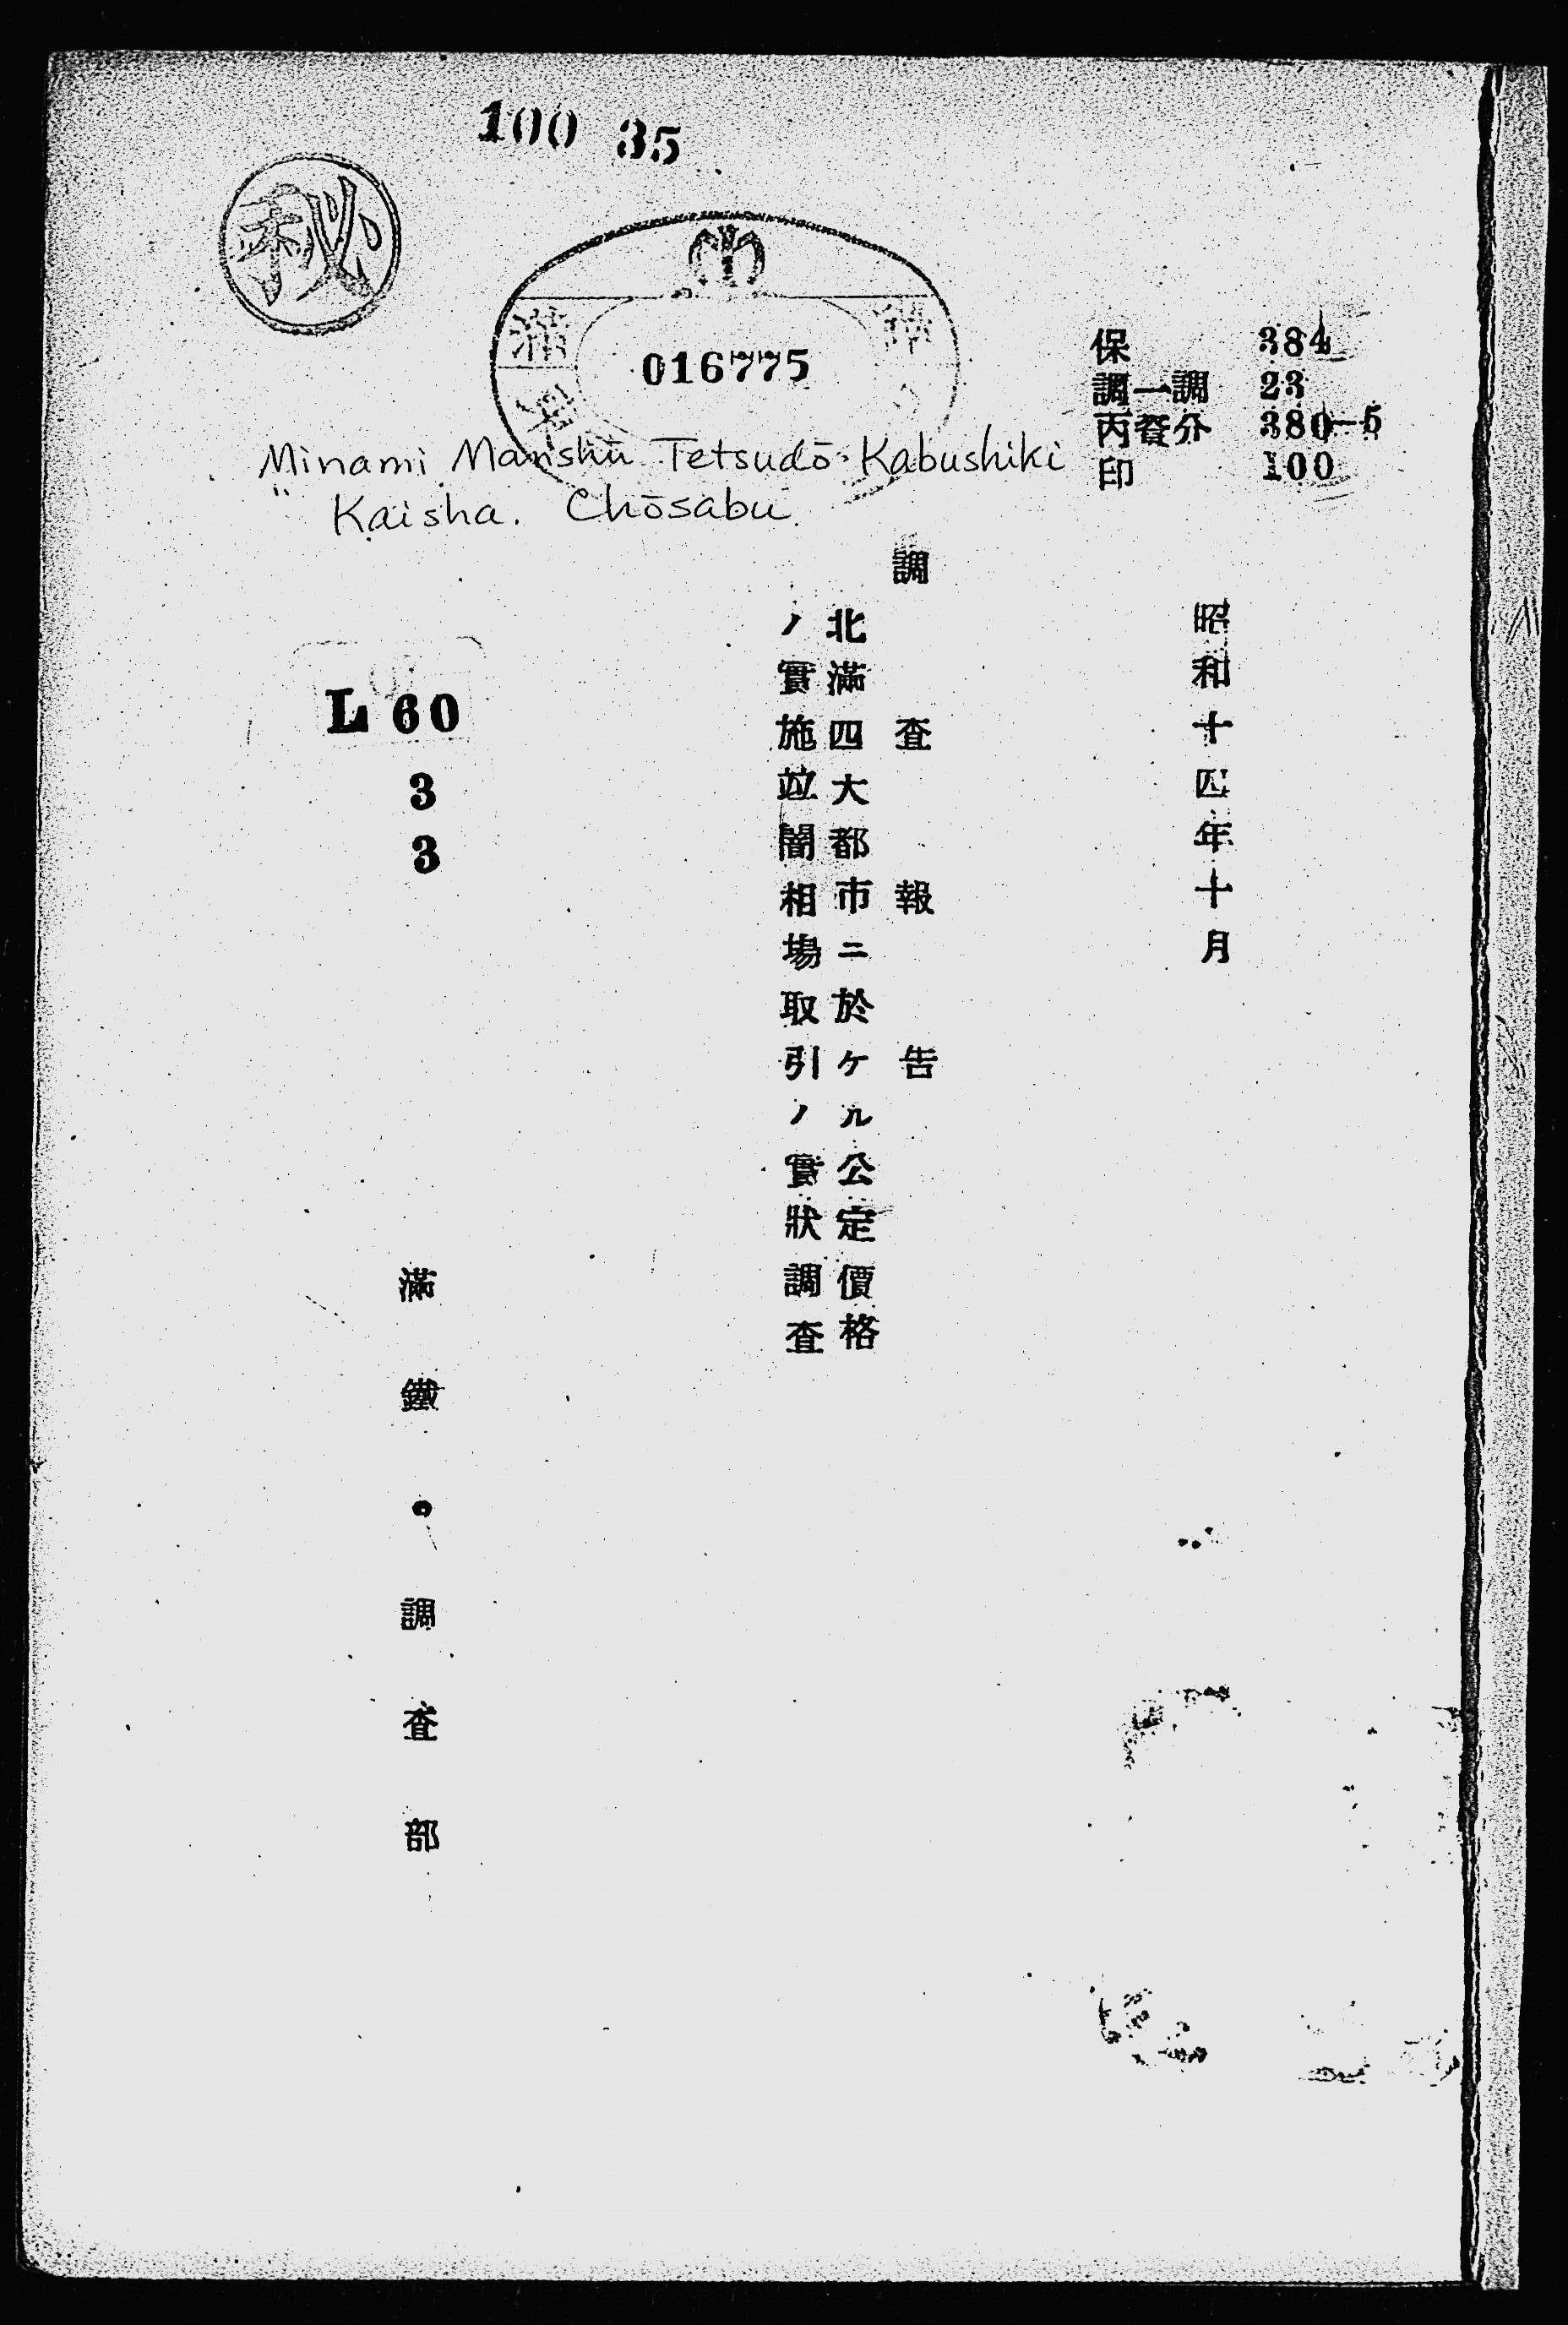 100 35
秘
016775
保 384
調一調 23
丙資分 380-5
印 100
Minami Manshū Tetsudō Kabushiki
Kaisha. Chōsabu
昭和十四年十月
調査報告
北滿四大都市ニ於ケル公定價格
ノ實施竝闇相場取引ノ實狀調査
L 60
3
3
滿鐵・調査部